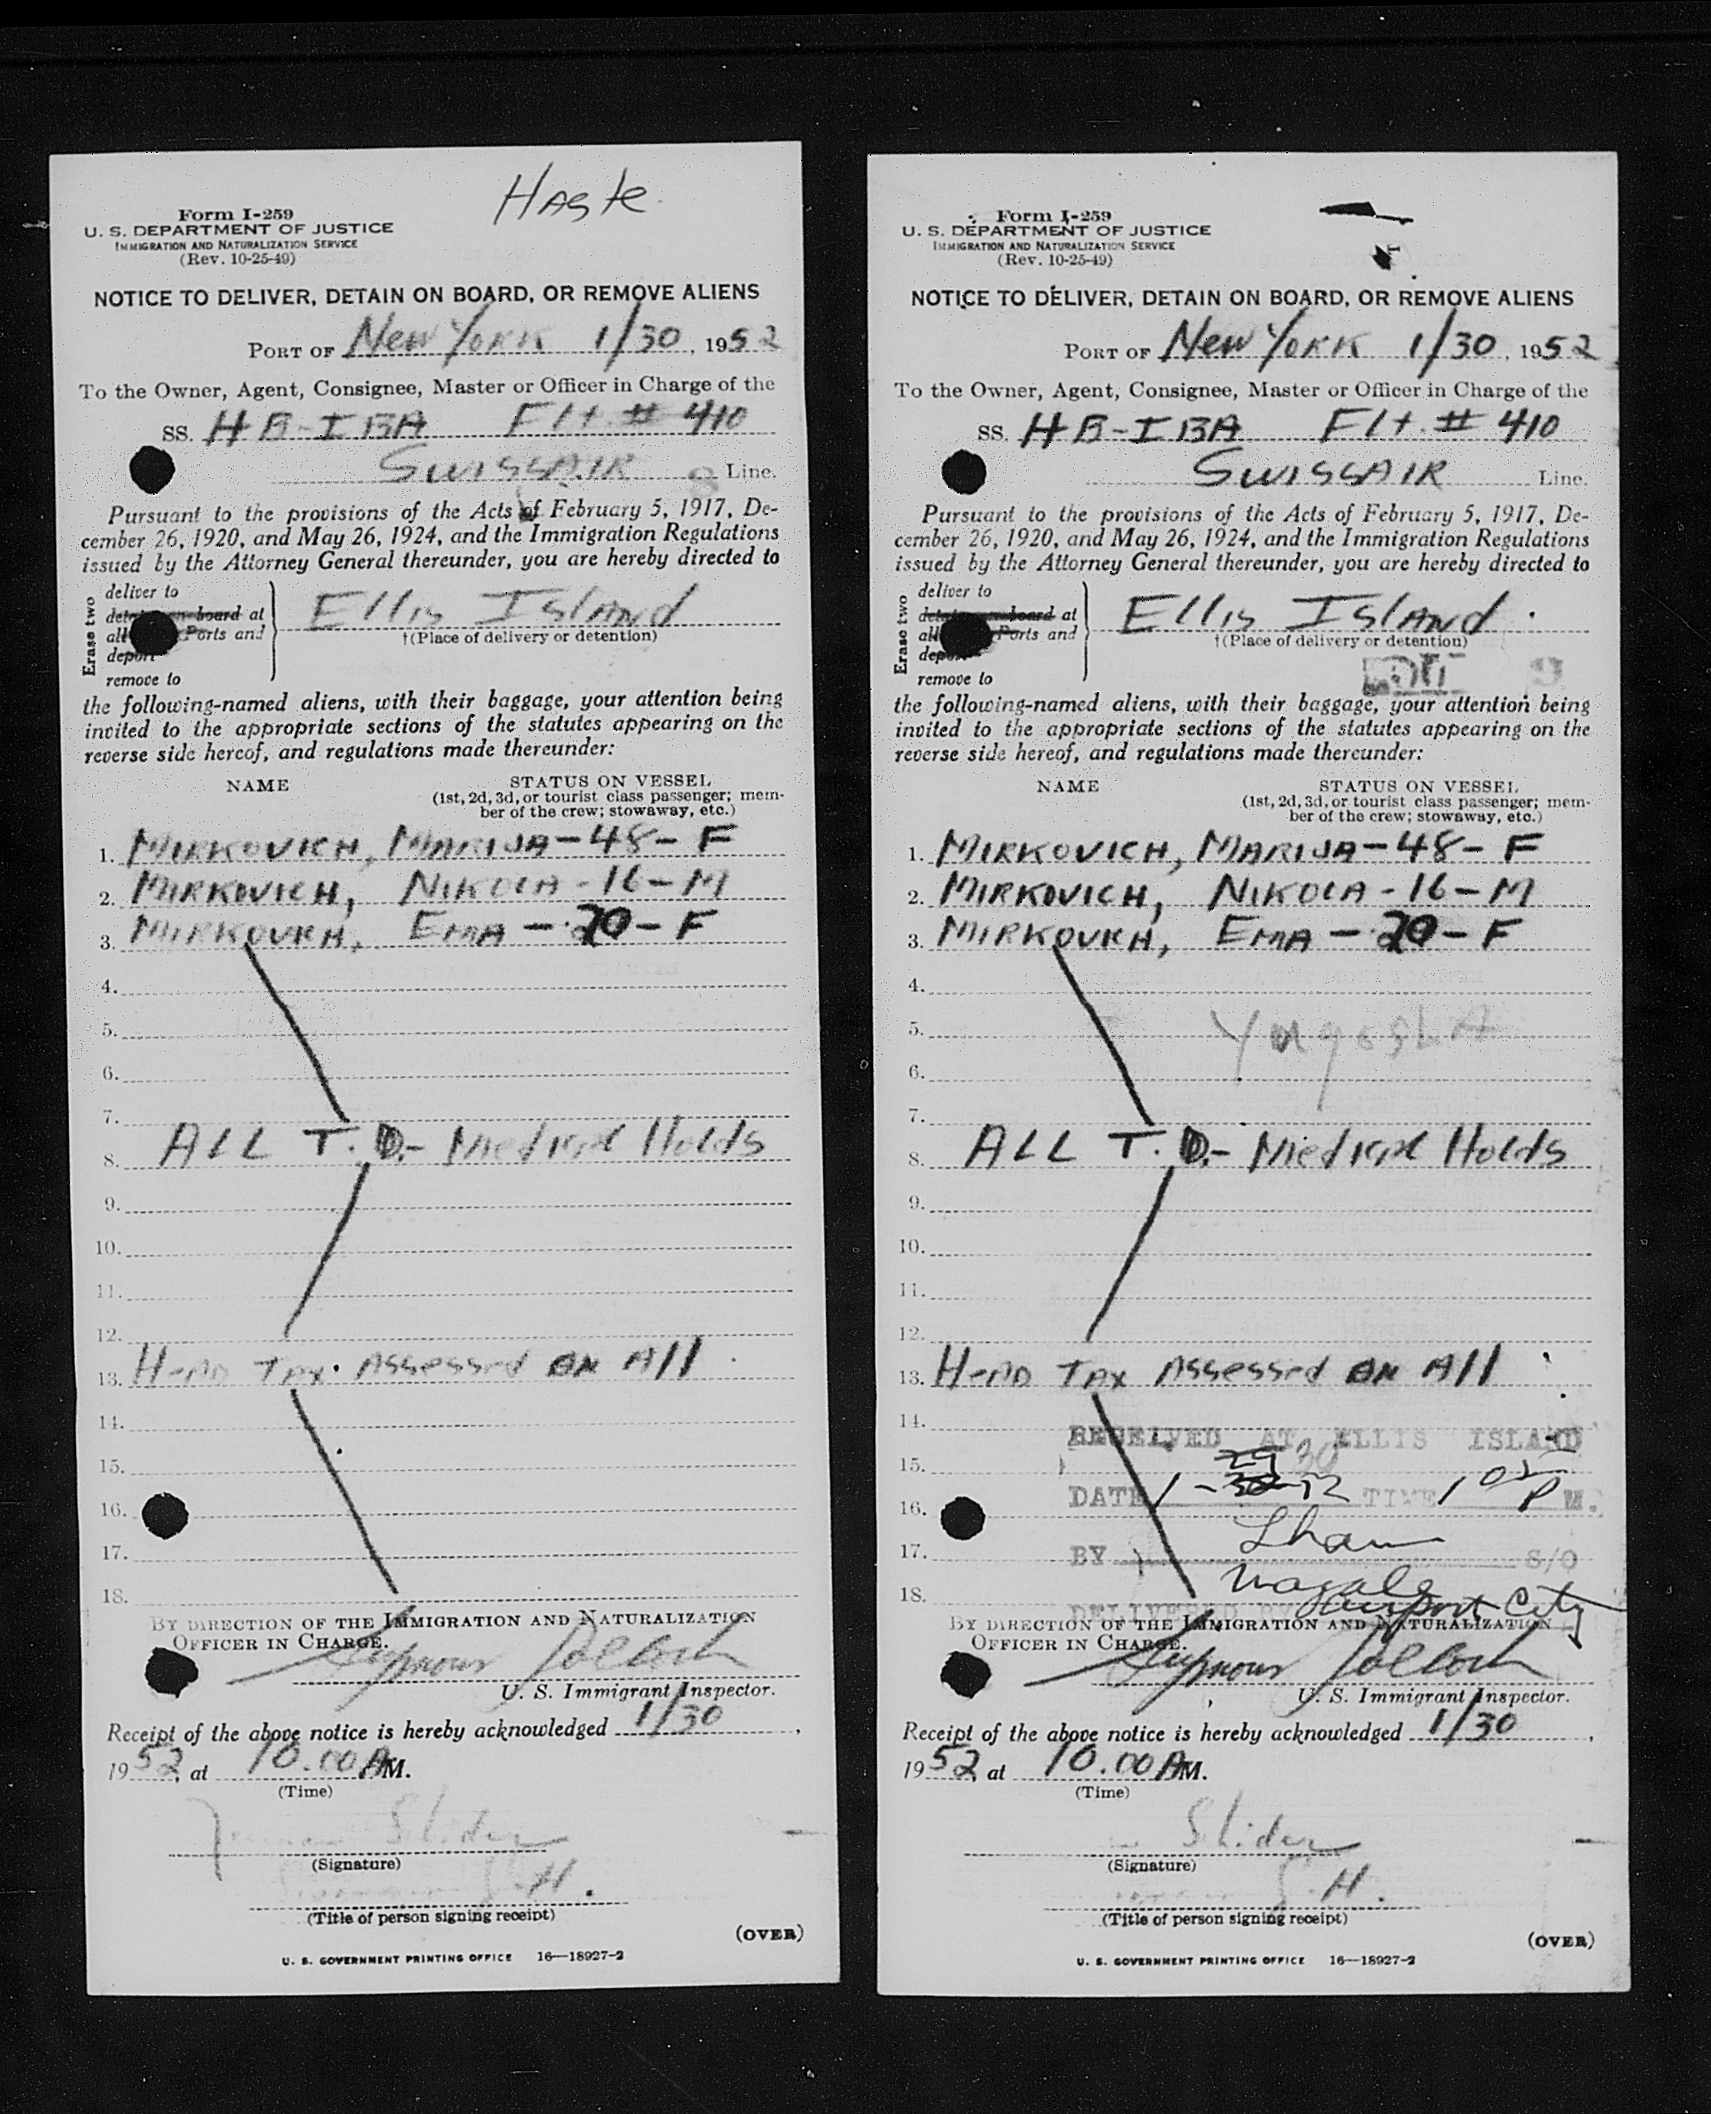 Haste
Form I-259
U. S. DEPARTMENT OF JUSTICE
IMMIGRATION AND NATURALIZATION SERVICE
(Rev. 10-25-49)
NOTICE TO DELIVER, DETAIN ON BOARD, OR REMOVE ALIENS
PORT OF New York 1/30, 1952
To the Owner, Agent, Consignee, Master or Officer in Charge of the
SS. HB-IBA Flt. # 410
SWISSAIR Line.
Pursuant to the provisions of the Acts of February 5, 1917, De-
cember 26, 1920, and May 26, 1924, and the Immigration Regulations
issued by the Attorney General thereunder, you are hereby directed to
Erase two
deliver to
board at
Ports and
deport
remove to
Ellis Island
†(Place of delivery or detention)
the following-named aliens, with their baggage, your attention being
invited to the appropriate sections of the statutes appearing on the
reverse side hereof, and regulations made thereunder:
NAME STATUS ON VESSEL
(1st, 2d, 3d, or tourist class passenger; mem-
ber of the crew; stowaway, etc.)
1. MIRKOVICH, MARIJA-48-F
2. MIRKOVICH, NIKOLA-16-M
3. MIRKOVICH, EMA-20-F
4.
5.
6.
7.
8. ALL T.D.- Medical Holds
9.
10.
11.
12.
13. Head Tax Assessed on All
14.
15.
16.
17.
18.
BY DIRECTION OF THE IMMIGRATION AND NATURALIZATION
OFFICER IN CHARGE.
Seymour Pollock
U. S. Immigrant Inspector.
Receipt of the above notice is hereby acknowledged 1/30,
1952, at 10.00 AM.
(Time)
(Signature)
(Title of person signing receipt)
(OVER)
U. S. GOVERNMENT PRINTING OFFICE 16—18927-2
Form I-259
U. S. DEPARTMENT OF JUSTICE
IMMIGRATION AND NATURALIZATION SERVICE
(Rev. 10-25-49)
NOTICE TO DELIVER, DETAIN ON BOARD, OR REMOVE ALIENS
PORT OF New York 1/30, 1952
To the Owner, Agent, Consignee, Master or Officer in Charge of the
SS. HB-IBA Flt. # 410
SWISSAIR Line.
Pursuant to the provisions of the Acts of February 5, 1917, De-
cember 26, 1920, and May 26, 1924, and the Immigration Regulations
issued by the Attorney General thereunder, you are hereby directed to
Erase two
deliver to
board at
Ports and
remove to
Ellis Island
†(Place of delivery or detention)
the following-named aliens, with their baggage, your attention being
invited to the appropriate sections of the statutes appearing on the
reverse side hereof, and regulations made thereunder:
NAME STATUS ON VESSEL
(1st, 2d, 3d, or tourist class passenger; mem-
ber of the crew; stowaway, etc.)
1. MIRKOVICH, MARIJA-48-F
2. MIRKOVICH, NIKOLA-16-M
3. MIRKOVICH, EMA-20-F
4.
5. YugoslA
6.
7.
8. ALL T.D.- Medical Holds
9.
10.
11.
12.
13. Head Tax Assessed on All
14. RECEIVED AT ELLIS ISLAND
15. 30
16. DATE 1- TIME 1 05 P M.
17. BY S/O
18.
DELIVERED BY Airport City
BY DIRECTION OF THE IMMIGRATION AND NATURALIZATION
OFFICER IN CHARGE.
Seymour Pollock
U. S. Immigrant Inspector.
Receipt of the above notice is hereby acknowledged 1/30,
1952, at 10.00 AM.
(Time)
(Signature)
(Title of person signing receipt)
(OVER)
U. S. GOVERNMENT PRINTING OFFICE 16—18927-2